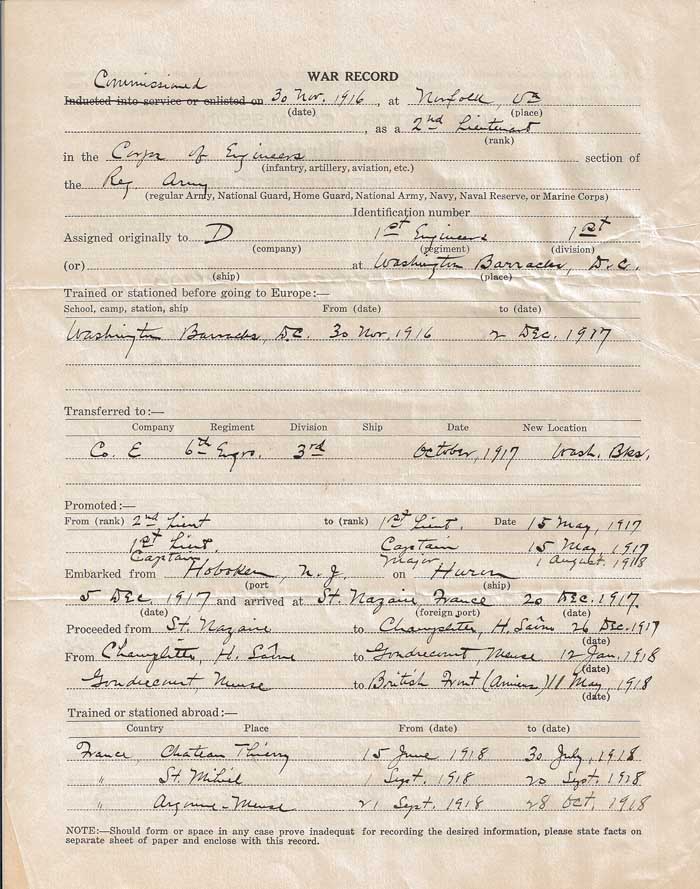 WAR RECORD
Commissioned
Inducted into service or enlisted on 30 Nov. 1916, at Norfolk, Va
(date) (place)
, as a 2nd Lieutenant
(rank)
in the Corps of Engineers section of
(infantry, artillery, aviation, etc.)
the Reg Army
(regular Army, National Guard, Home Guard, National Army, Navy, Naval Reserve, or Marine Corps)
Identification number
Assigned originally to D 1st Engineers 1st
(company) (regiment) (division)
(or) at Washington Barracks, D.C.
(ship) (place)
Trained or stationed before going to Europe:—
School, camp, station, ship From (date) to (date)
Washington Barracks, D.C. 30 Nov. 1916 2 Dec. 1917
Transferred to:—
Company Regiment Division Ship Date New Location
Co. E 6th Engrs. 3rd October, 1917 Wash. Bks.
Promoted:—
From (rank) 2nd Lieut to (rank) 1st Lieut. Date 15 May, 1917
1st Lieut. Captain 15 May, 1917
Captain Major 1 August, 1918
Embarked from Hoboken, N.J. on Huron
(port (ship)
5 Dec. 1917 and arrived at St. Nazaire, France 20 Dec. 1917.
(date) (foreign port) (date)
Proceeded from St. Nazaire to Champlitte, H. Saône 26 Dec. 1917
(date)
From Champlitte, H. Saône to Gondrecourt, Meuse 12 Jan. 1918
(date)
Gondrecourt Meuse to British Front (Amiens) 11 May, 1918
(date)
Trained or stationed abroad:—
Country Place From (date) to (date)
France, Chateau Thierry 15 June 1918 30 July, 1918
" St. Mihiel 1 Sept. 1918 20 Sept. 1918
" Argonne-Meuse 21 Sept. 1918 28 Oct, 1918
NOTE:—Should form or space in any case prove inadequat for recording the desired information, please state facts on
separate sheet of paper and enclose with this record.